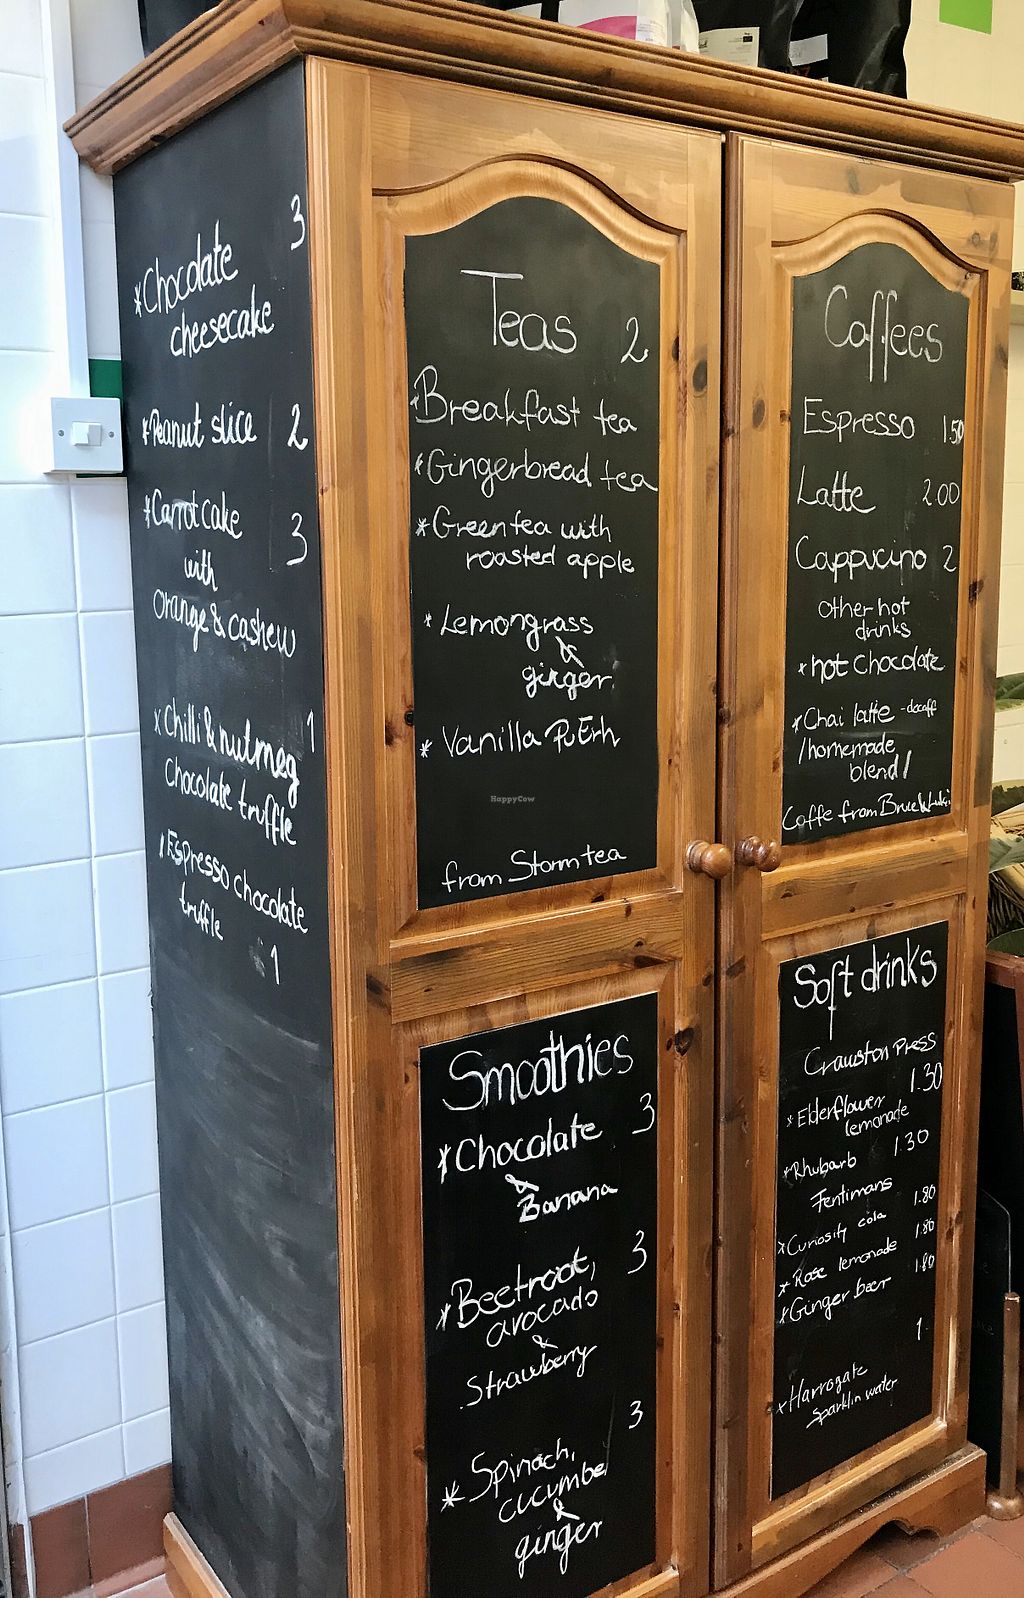 3
*Chocolate
cheesecake
*Peanut slice 2
*Carrot cake 3
with
orange & cashew
*Chilli & nutmeg 1
chocolate truffle
*Espresso chocolate
truffle
1
Teas 2
*Breakfast tea
*Gingerbread tea
*Green tea with
roasted apple
*Lemongrass
&
ginger
*Vanilla PuErh
HappyCow
from Storm tea
Coffees
Espresso 1.50
Latte 2.00
Cappucino 2
other hot
drinks
*hot chocolate
*Chai latte - decaff
/homemade
blend/
Coffe from
Smoothies
*Chocolate 3
&
Banana
*Beetroot, 3
avocado
&
Strawberry
3
*Spinach,
cucumber
&
ginger
Soft drinks
Crawston Press
1.30
*Elderflower
lemonade
*Rhubarb 1.30
Fentimans
*Curiosity cola 1.80
*Rose lemonade 1.80
*Ginger beer 1.80
1
*Harrogate
Sparklin water